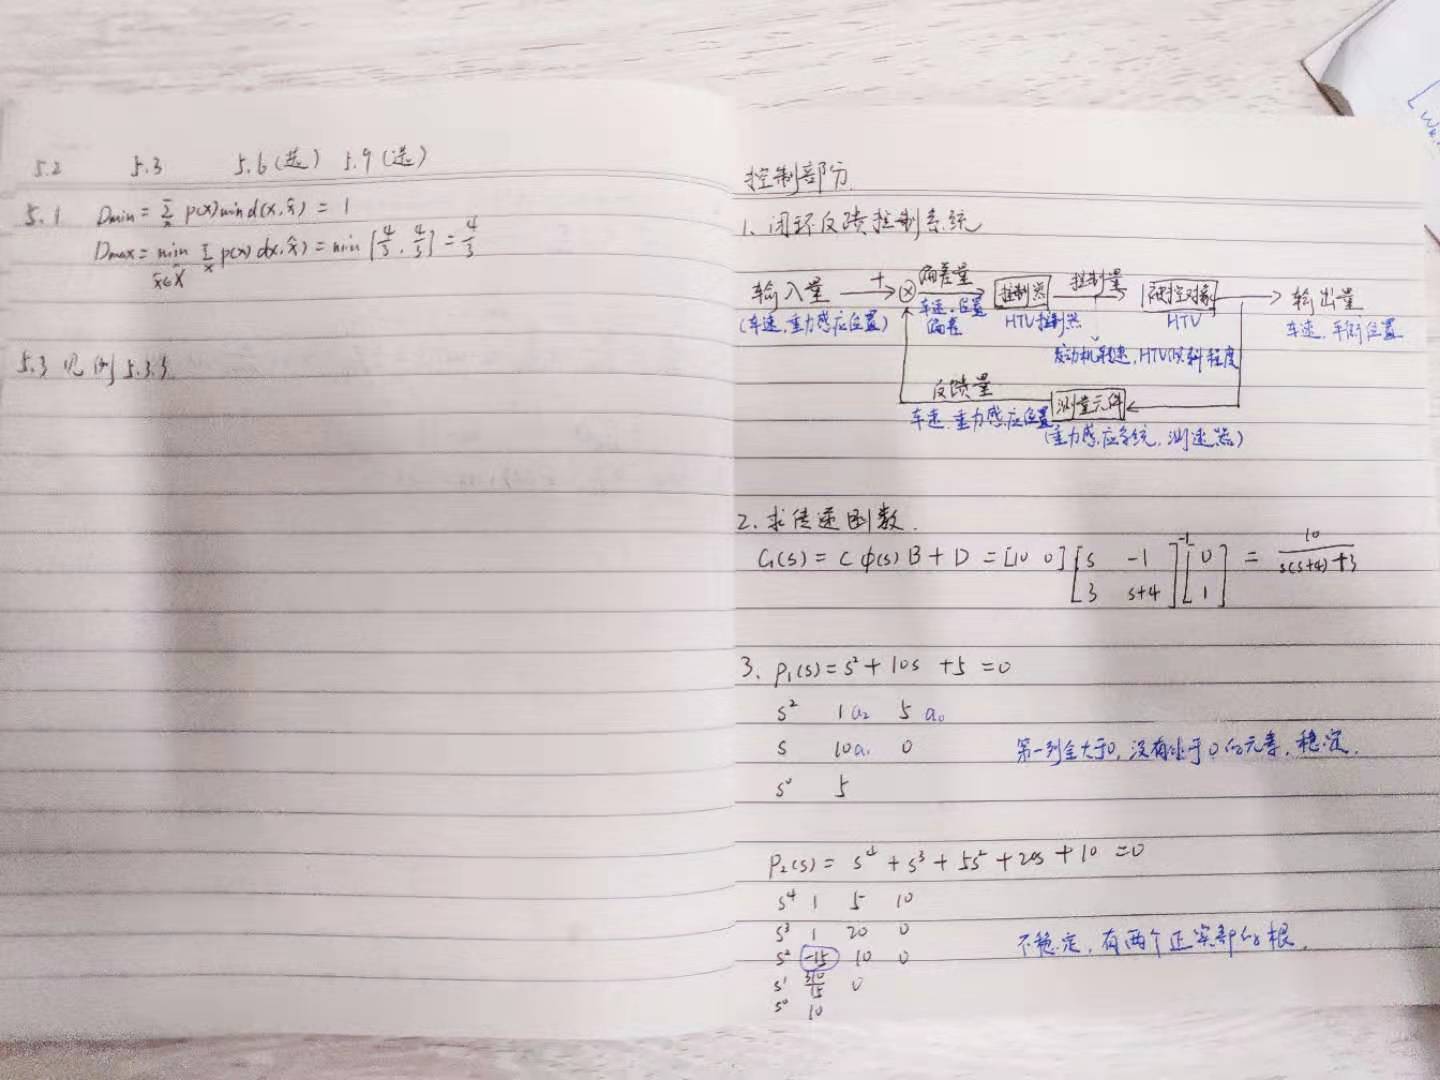 5.2 5.3 5.6(选) 5.9(选)
5.1 Dmin = Σ_x p(x) min d(x, x̂) = 1
Dmax = min_{x̂∈X̂} Σ_x p(x) d(x, x̂) = min [4/3, 4/3] = 4/3
5.3 见例5.3.3
控制部分
1. 闭环反馈控制系统
输入量 + ⊗ 偏差量 控制器 控制量 被控对象 输出量
(车速, 重力感应位置) 车速, 位置偏差 HTV控制器 HTV 车速, 平衡位置
发动机转速, HTV倾斜程度
反馈量 测量元件
车速, 重力感应位置 (重力感应系统, 测速器)
2. 求传递函数.
G(s) = C Φ(s) B + D = [10 0] [s -1; 3 s+4]^-1 [0; 1] = 10/(s(s+4)+3)
3. P₁(s) = s² + 10s + 5 = 0
s² 1 a₂ 5 a₀
s 10 a₁ 0
s⁰ 5
第一列全大于0, 没有小于0的元素, 稳定.
P₂(s) = s⁴ + s³ + 5s² + 20s + 10 = 0
s⁴ 1 5 10
s³ 1 20 0
s² -15 10 0
s¹ 310/15 0
s⁰ 10
不稳定, 有两个正实部的根.